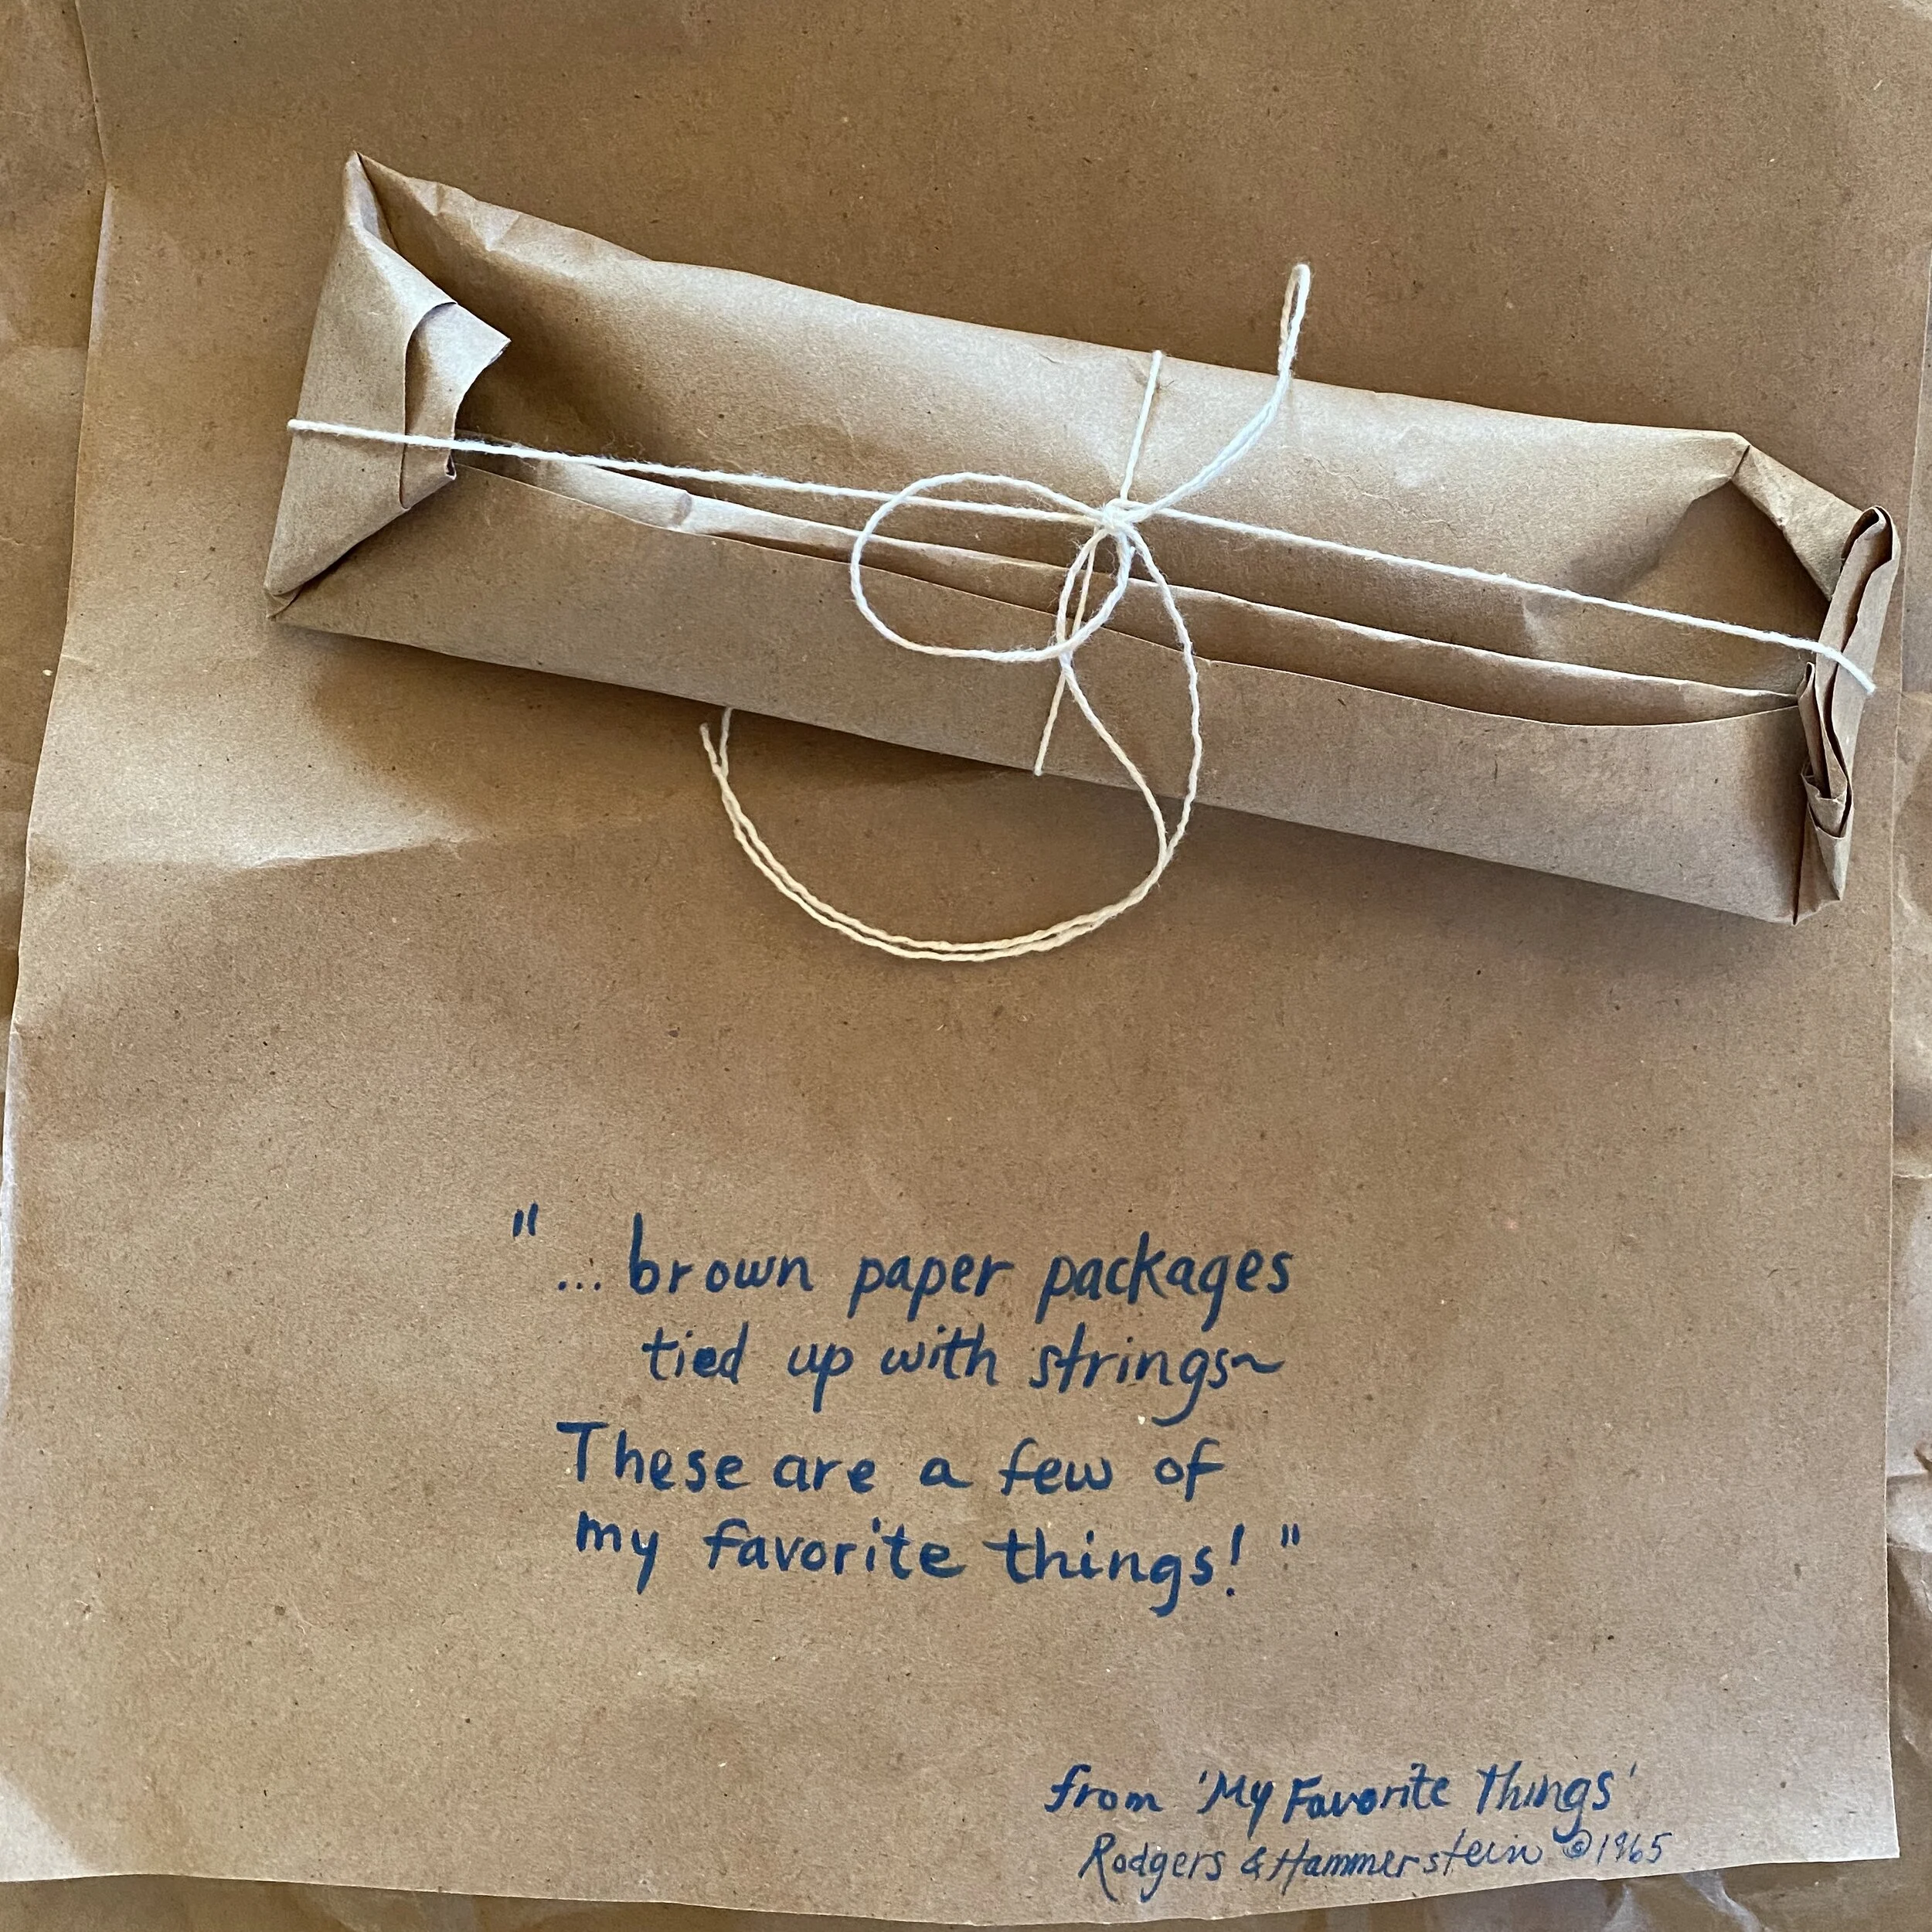 "... brown paper packages
tied up with strings~
These are a few of
my favorite things!"
from 'My Favorite Things'
Rodgers & Hammerstein ©1965